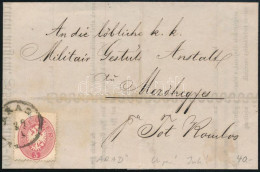 An die löbliche k. k.
Militair Gestüts Anstalt
zu
Mezöhegyes
pr Tót Komlos
ARAD
"ARAD"
40.-